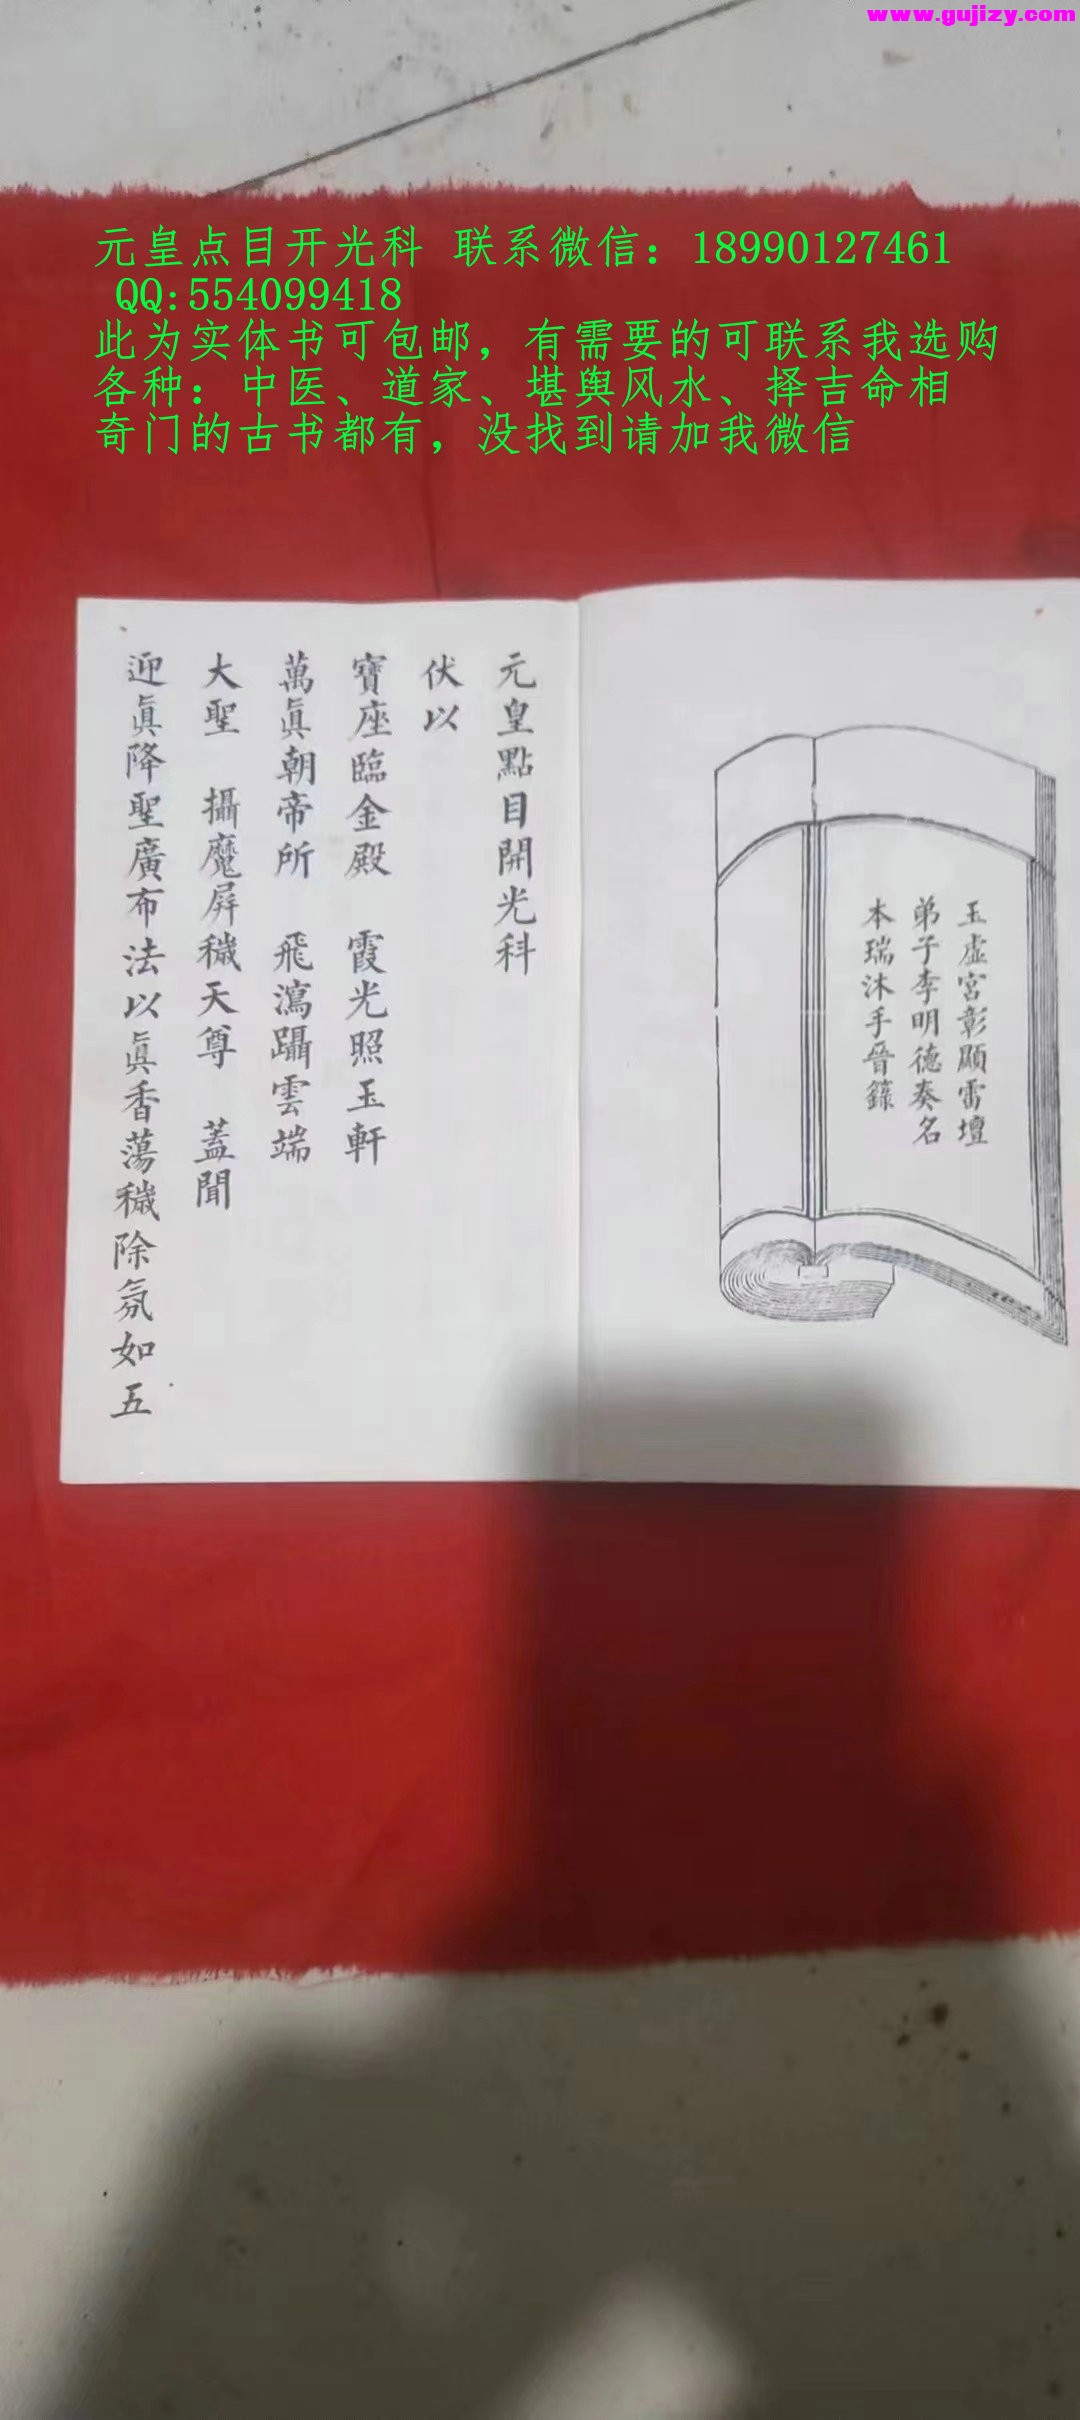 www.gujizy.com
元皇点目开光科 联系微信：18990127461
QQ:554099418
此为实体书可包邮，有需要的可联系我选购
各种：中医、道家、堪舆风水、择吉命相
奇门的古书都有，没找到请加我微信
玉虛宮彰顯雷壇
弟子李明德奏名
本瑞沐手晉籙
元皇點目開光科
伏以
寶座臨金殿 霞光照玉軒
萬眞朝帝所 飛瀉躡雲端
大聖 攝魔屛穢天尊 蓋聞
迎眞降聖廣布法以眞香蕩穢除氛如五